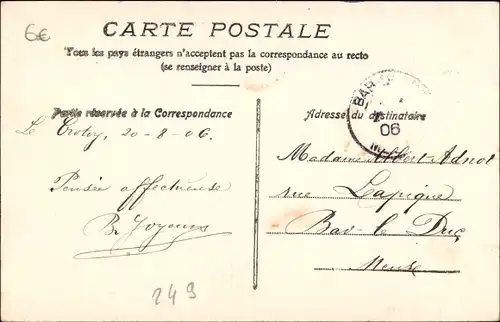 6€
CARTE POSTALE
Tous les pays étrangers n'acceptent pas la correspondance au recto
(se renseigner à la poste)
Partie réservée à la Correspondance
Adresse du destinataire
BAR
06
Le Crotoy, 20-8-06.
Pensée affectueuse
B. Joyeux
Madame Albert Adnot
rue Lapique
Bar-le Duc
Meuse
249